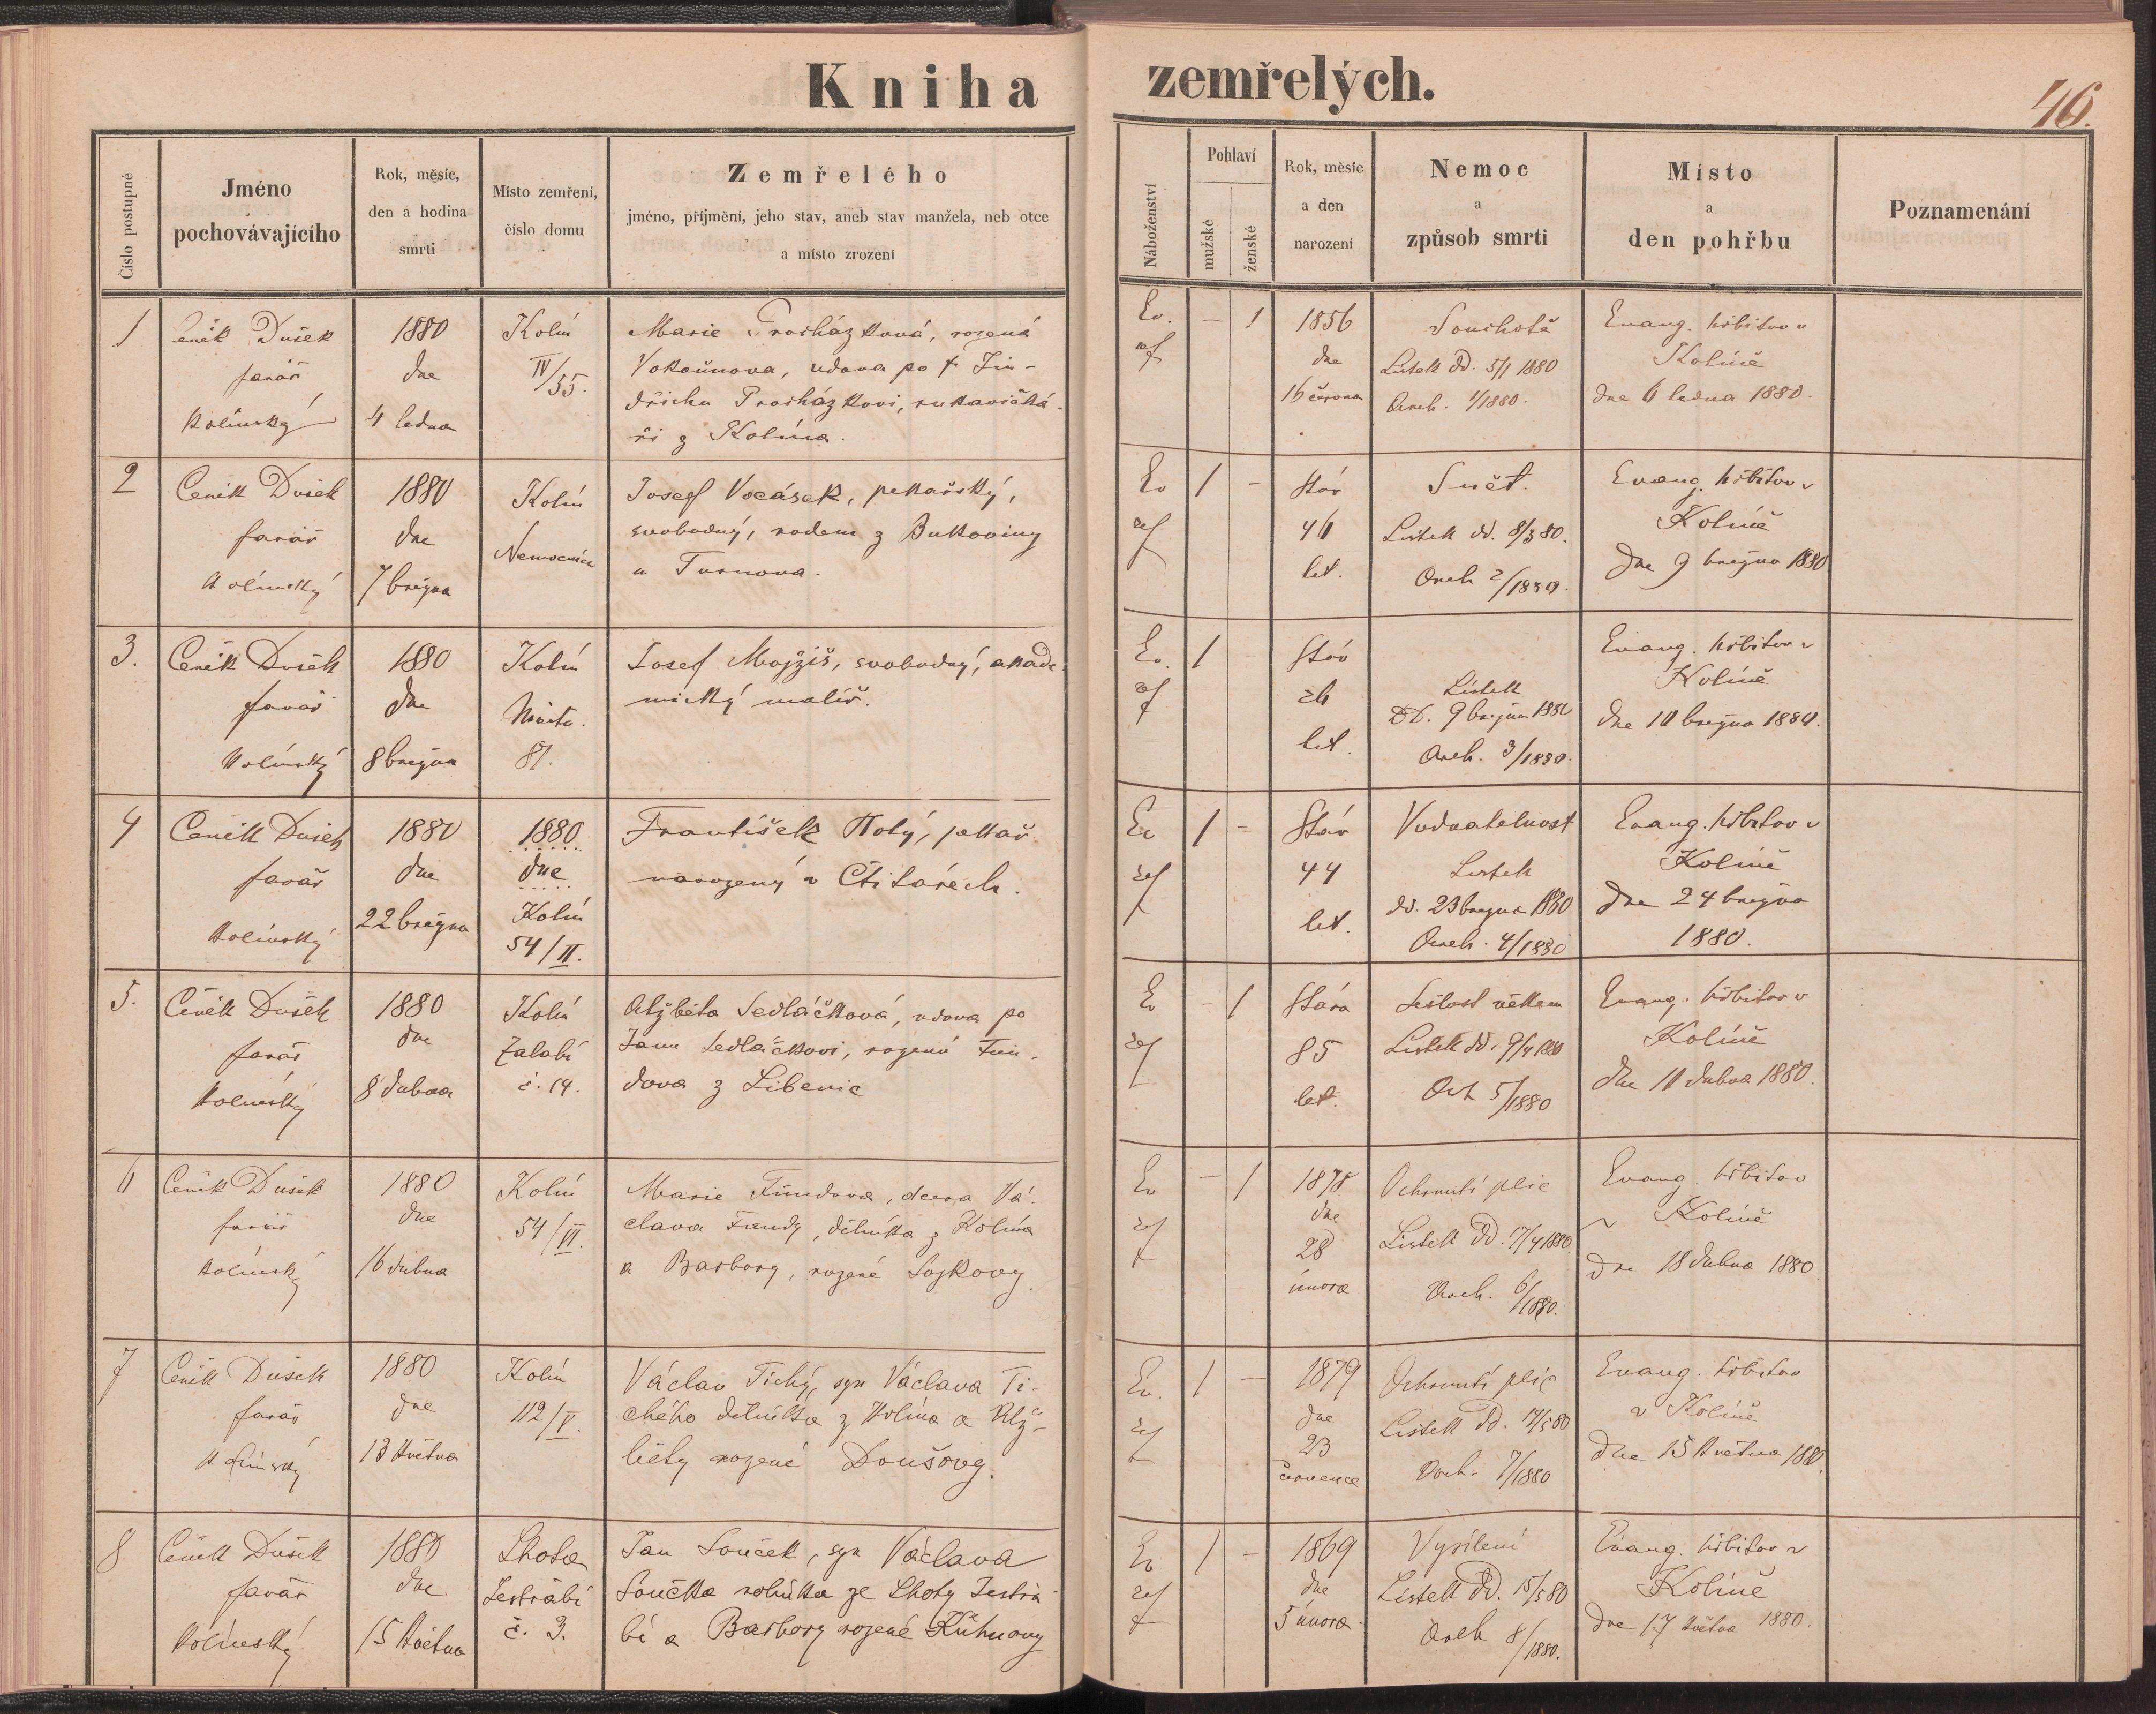 Kniha zemřelých.
46.
Číslo postupné
Jméno
pochovávajícího
Rok, měsíc,
den a hodina
smrti
Místo zemření,
číslo domu
Zemřelého
jméno, příjmení, jeho stav, aneb stav manžela, neb otce
a místo zrození
Náboženství
Pohlaví
mužské
ženské
Rok, měsíc
a den
narození
Nemoc
a
způsob smrti
Místo
a
den pohřbu
Poznamenání
1
Čeněk Dušek
farář
Kolínský
1880
dne
4 ledna
Kolín
IV/55.
Marie Procházková, rozená
Vokounova, vdova po † Jin-
dřichu Procházkovi, rukavičká-
ři z Kolína.
Ev.
ref
—
1
1856
dne
16 června
Souchotě
Lístek dd. 5/1 1880
Arch. 1/1880.
Evang. hřbitov v
Kolíně
dne 6 ledna 1880.
2
Čeněk Dušek
farář
Kolínský
1880
dne
7 března
Kolín
Nemocnice
Josef Vocásek, pekařský,
svobodný, rodem z Bukoviny
u Turnova.
Ev
ref
1
-
stár
46
let.
Sněť.
Lístek dd. 8/3 80.
Arch 2/1880.
Evang. hřbitov v
Kolíně
dne 9 března 1880
3.
Čeněk Dušek
farář
Kolínský
1880
dne
8 března
Kolín
Město.
81.
Josef Mojžíš, svobodný, akade-
mický malíř.
Ev.
ref
1
-
stár
26
let.
Lístek
DD. 9 března 1880
Arch. 3/1880.
Evang. hřbitov v
Kolíně
dne 10 března 1880.
4
Čeněk Dušek
farář
Kolínský
1880
dne
22 března
1880
dne
Kolín
54/II.
František Notý, pekař
narozený v Ctitarech.
Ev
ref
1
-
stár
44
let.
Vodnatelnost
Lístek
dd. 23 března 1880
Arch. 4/1880
Evang. hřbitov v
Kolíně
dne 24 března
1880.
5.
Čeněk Dušek
farář
Kolínský
1880
dne
8 dubna
Kolín
Zálabí
č. 14.
Alžběta Sedláčková, vdova po
Janu Sedláčkovi, rozená Fun-
dova z Libenic
Ev
ref
-
1
stára
85
let.
Sešlost věkem
Lístek dd. 9/4 1880
Arch 5/1880
Evang. hřbitov v
Kolíně
dne 10 dubna 1880.
6
Čeněk Dušek
farář
Kolínský
1880
dne
16 dubna
Kolín
54/VI.
Marie Fundova, dcera Vá-
clava Fundy, dělníka z Kolína
a Barbory, rozené Sojkovy.
Ev
ref
—
1
1878
dne
28
února
Ochrnutí plic
Lístek dd. 17/4 1880
Arch. 6/1880.
Evang. hřbitov
v Kolíně
dne 18 dubna 1880
7
Čeněk Dušek
farář
Kolínský
1880
dne
13 května
Kolín
112/V.
Václav Tichý, syn Václava Ti-
chého dělníka z Kolína a Alž-
běty rozené Doušovy.
Ev.
ref
1
—
1879
dne
23
července
Ochrnutí plic
Lístek dd. 14/5 80
Arch. 7/1880
Evang. hřbitov
v Kolíně
dne 15 května 1880.
8
Čeněk Dušek
farář
Kolínský
1880
dne
15 května
Lhota
Jestrabí
č. 3.
Jan Souček, syn Václava
Součka rolníka ze Lhoty Jestra-
bí a Barbory rozené Kuhnovy
Ev
ref
1
-
1869
dne
5 února.
Vysílení
Lístek dd. 15/5 80
Arch 8/1880.
Evang. hřbitov v
Kolíně
dne 17 května 1880.